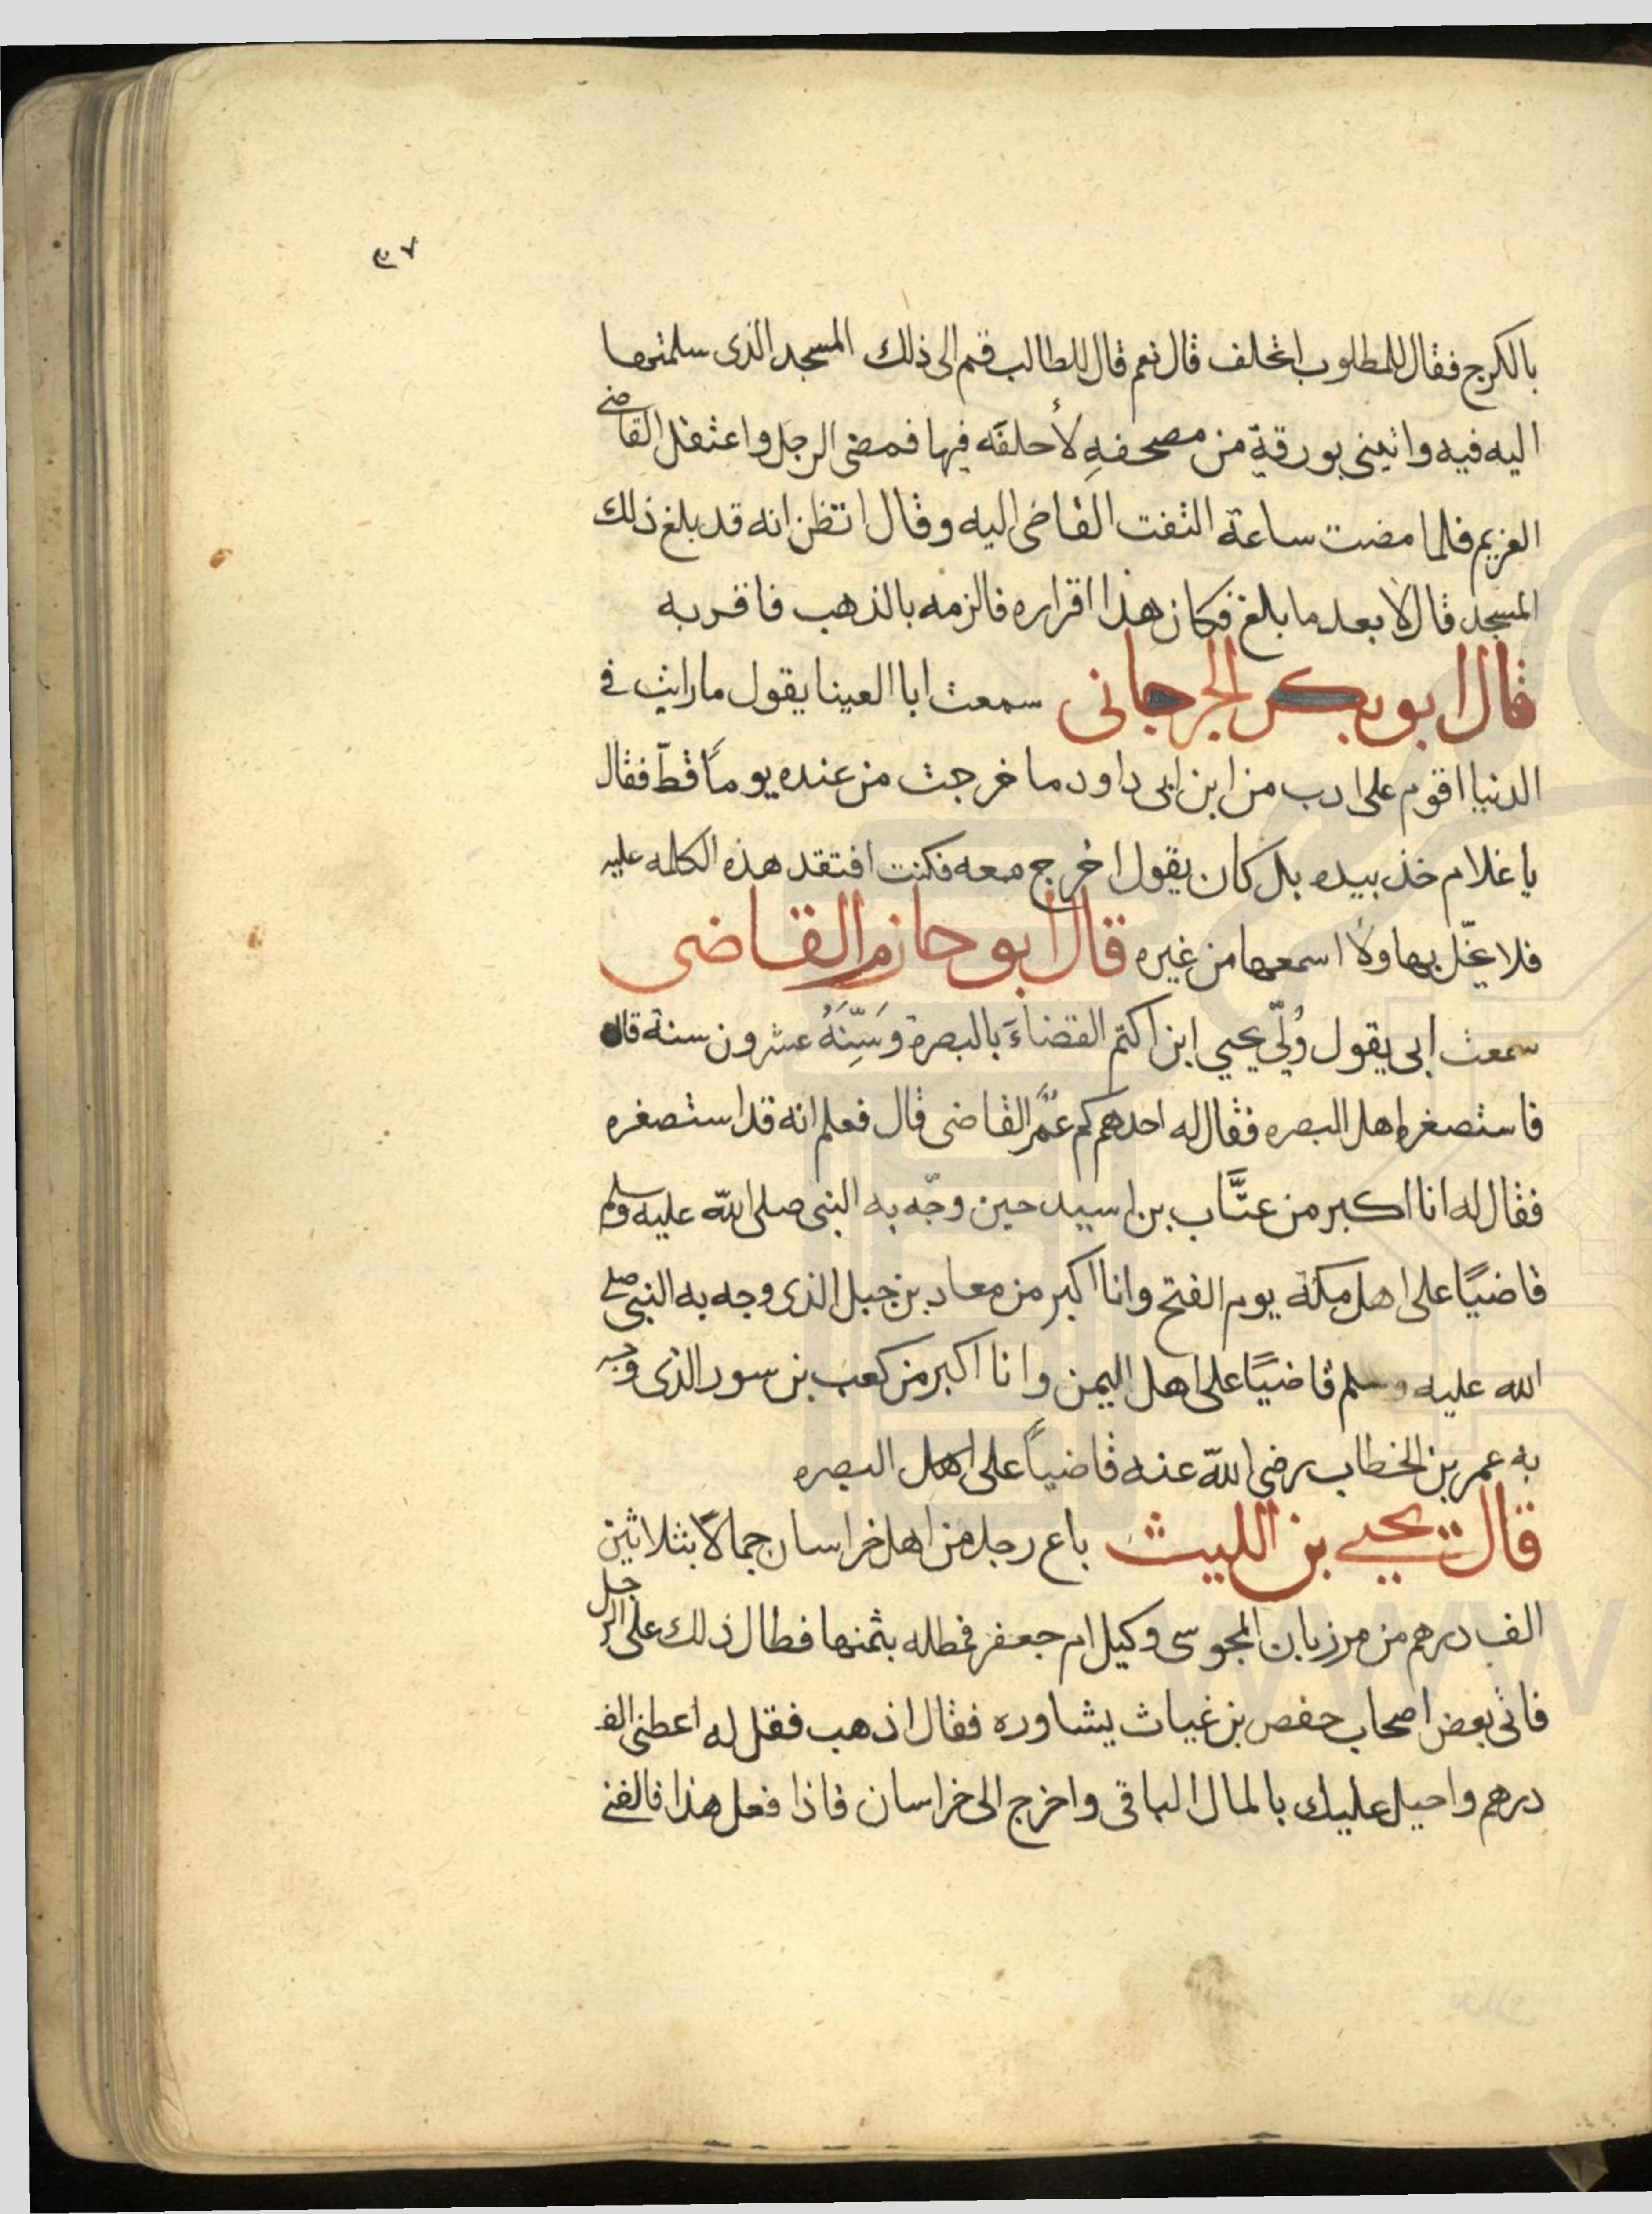 بالكرج فقال للمطلوب اتحلف قال نعم قال للطالب قم الى ذلك المسجد الذى سلمتها
اليه فيه واتينى بورقة من مصحفهِ لأحلفَه فيها فمضى الرجل واعتقل القاضى
الغريم فلما مضت ساعة التفت القاضى اليه وقال اتظن انه قد بلغ ذلك
المسجد قال لا بعد ما بلغ فكان هذا اقراره فالزمه بالذهب فاقر به
قال ابو بكر الجرجانى سمعت ابا العينا يقول ما رايت فى
الدنيا اقوم على ادب من ابن ابى داود ما خرجت من عنده يوماً قطّ فقال
يا غلام خذ بيده بل كان يقول اخرج معه فكنت افتقد هذه الكلمه عليه
فلا يخلّ بها ولا اسمعها من غيره قال ابو حازم القاضى
سمعت ابى يقول وُلّي يحيي ابن اكثم القضاءَ بالبصرة وَسَنّهُ عشرون سنة قال
فاستصغره اهل البصره فقال له احدهم كم عُمَّر القاضى قال فعلم انه قد استصغره
فقال له انا اكبر من عتَّاب بن اسيد حين وجّه به النبى صلى الله عليه وسلم
قاضيًا على اهل مكة يوم الفتح وانا اكبر من معاد بن جبل الذى وجه به النبى صلى
الله عليه وسلم قاضيًا على اهل اليمن وانا اكبر من كعب بن سور الذى وجه
به عمر بن الخطاب رضى الله عنه قاضياً على اهل البصره
قال يحيى بن الليث باع رجل من اهل خراسان جمالاً بثلاثين
الف درهم من مرزبان المجوسى وكيل ام جعفر فمطله بثمنها فطال ذلك على الرجل
فاتى بعض اصحاب حفص بن غياث يشاوره فقال اذهب فقل له اعطنى الف
درهم واحيل عليك بالمال الباقى واخرج الى خراسان فاذا فعل هذا فالقنى